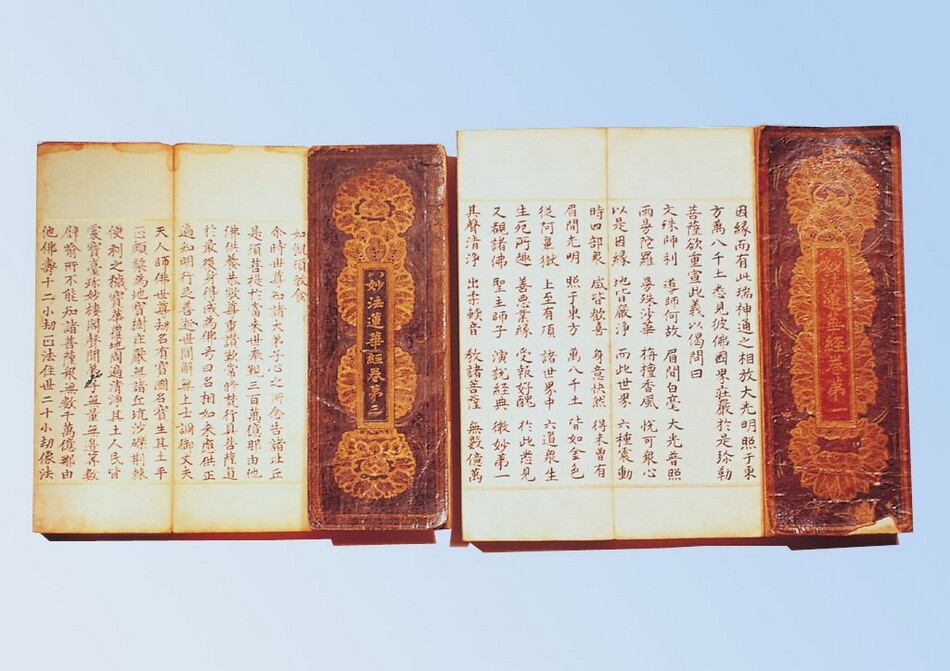 妙法蓮華經卷第一
因緣而有此瑞神通之相放大光明照于東
方萬八千土悉見彼佛國界莊嚴於是弥勒
菩薩欲重宣此義以偈問曰
文殊師利 導師何故 眉間白毫 大光普照
雨曼陀羅 曼殊沙華 栴檀香風 悅可衆心
以是因緣 地皆嚴淨 而此世界 六種震動
時四部衆 咸皆歡喜 身意快然 得未曾有
眉間光明 照于東方 萬八千土 皆如金色
從阿鼻獄 上至有頂 諸世界中 六道衆生
生死所趣 善惡業緣 受報好醜 於此悉見
又覩諸佛 聖主師子 演說經典 微妙第一
其聲清淨 出柔軟音 敎諸菩薩 無數億萬
妙法蓮華經卷第三
如飢須敎食
尒時世尊知諸大弟子心之所念告諸比丘
是須菩提於當來世奉覲三百萬億那由他
佛供養恭敬尊重讚歎常修梵行具菩薩道
於最後身得成爲佛号曰名相如來應供正
遍知明行足善逝世間解無上士調御丈夫
天人師佛世尊劫名有寶國名寶生其土平
正頗黎爲地寶樹莊嚴無諸丘坑沙礫荊棘
便利之穢寶華覆地周遍清淨其土人民皆
處寶臺珍妙樓閣聲聞弟子無量無邊筭數
譬喻所不能知諸菩薩衆無數千萬億那由
他佛壽十二小劫正法住世二十小劫像法